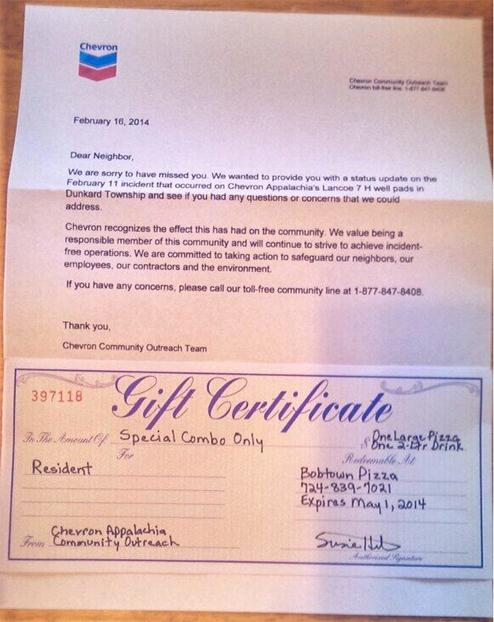 Chevron
Chevron Community Outreach Team
Chevron toll-free line: 1-877-847-8408
February 16, 2014
Dear Neighbor,
We are sorry to have missed you. We wanted to provide you with a status update on the
February 11 incident that occurred on Chevron Appalachia's Lancoe 7 H well pads in
Dunkard Township and see if you had any questions or concerns that we could
address.
Chevron recognizes the effect this has had on the community. We value being a
responsible member of this community and will continue to strive to achieve incident-
free operations. We are committed to taking action to safeguard our neighbors, our
employees, our contractors and the environment.
If you have any concerns, please call our toll-free community line at 1-877-847-8408.
Thank you,
Chevron Community Outreach Team
Gift Certificate
397118
In The Amount Of Special Combo Only
$ One Large Pizza
One 2-Ltr Drink
For
Resident
Redeemable At
Bobtown Pizza
724-839-7021
Expires May 1, 2014
From Chevron Appalachia
Community Outreach
Authorized Signature